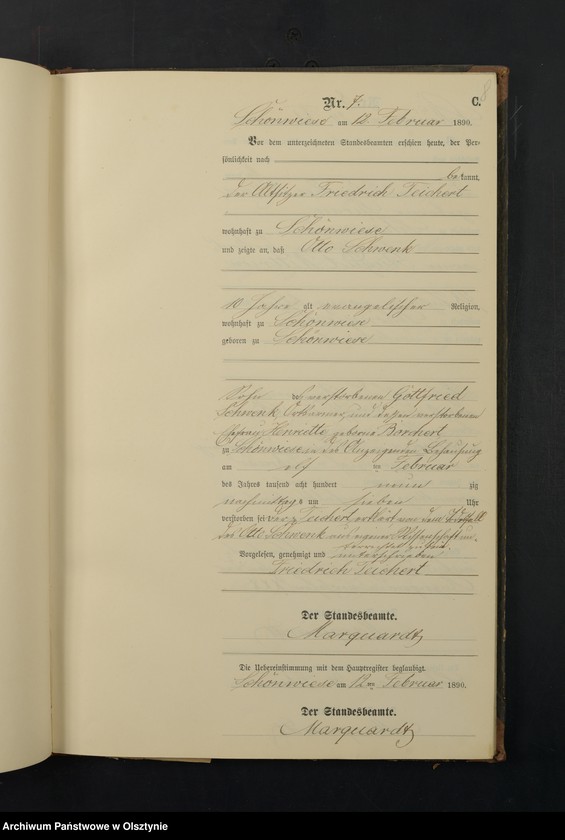 Nr. 7.
C.
Schönwiese am 12 Februar 1890.
Vor dem unterzeichneten Standesbeamten erschien heute, der Per-
sönlichkeit nach
bekannt,
der Altsitzer Friedrich Teichert
wohnhaft zu Schönwiese
und zeigte an, daß Otto Schwenk
10 Jahre alt evangelischer Religion,
wohnhaft zu Schönwiese
geboren zu Schönwiese
Sohn des verstorbenen Gottfried
Schwenk, und dessen verstorbenen
Ehefrau Henriette geborne Borchert
zu Schönwiese in des Anzeigenden Behausung
am elf ten Februar
des Jahres tausend acht hundert neun zig
nachmittags um sieben Uhr
verstorben sei. Teichert erklärt von dem Sterbefall
des Otto Schwenk aus eigener Wissenschaft un-
terrichtet zu sein.
Vorgelesen, genehmigt und unterschrieben
Friedrich Teichert
Der Standesbeamte.
Marquardt
Die Uebereinstimmung mit dem Hauptregister beglaubigt.
Schönwiese am 12ten Februar 1890.
Der Standesbeamte.
Marquardt
Archiwum Państwowe w Olsztynie